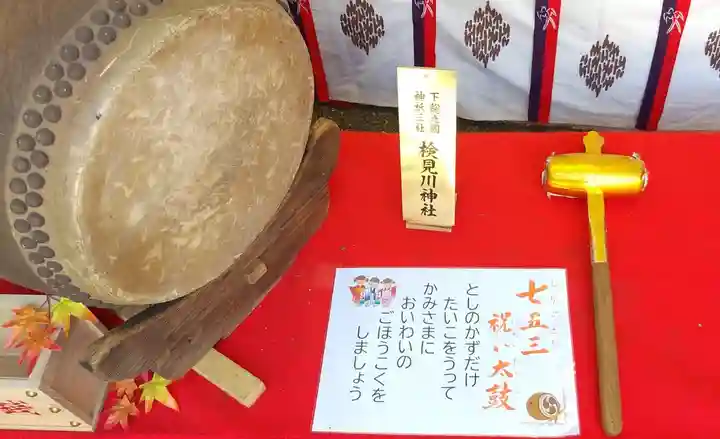 下総之國
神祇三社
検見川神社
七五三
祝い太鼓
としのかずだけ
たいこをうって
かみさまに
おいわいの
ごほうこくを
しましょう